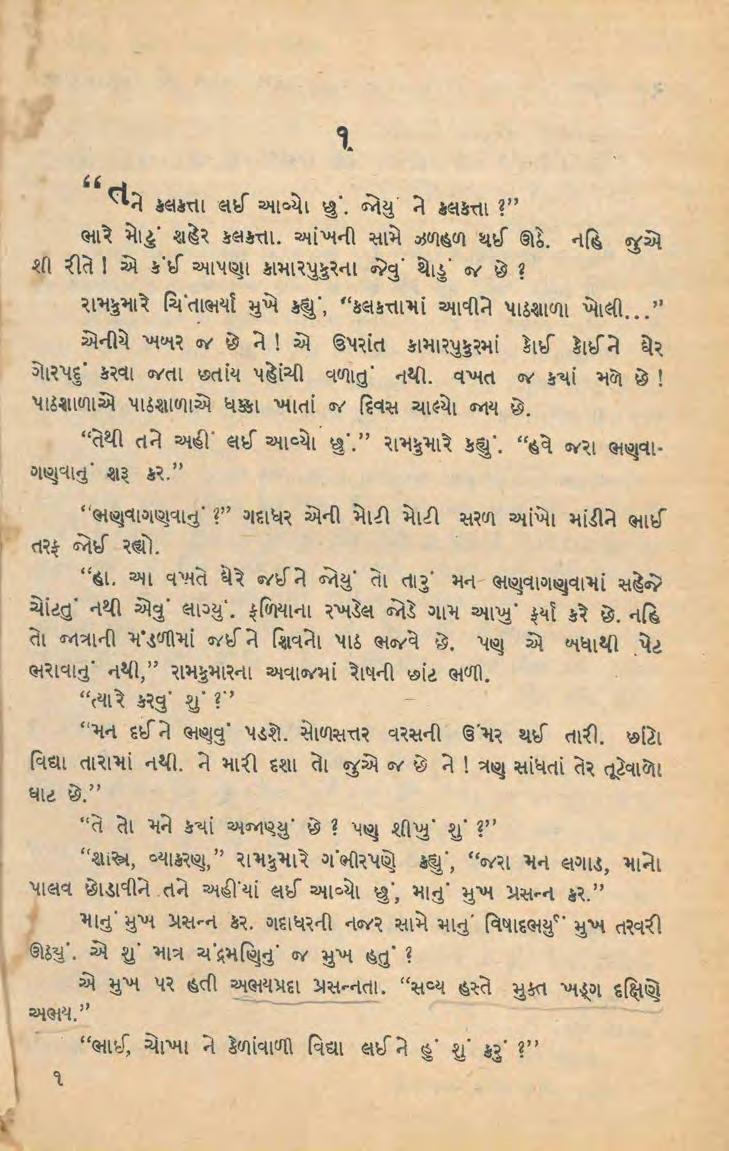 ૧.
“તને કલકત્તા લઈ આવ્યો છું. જોયું ને કલકત્તા ?”
ભારે મોટું શહેર કલકત્તા. આંખની સામે ઝળહળ થઈ ઊઠે. નહિ જુએ
શી રીતે ! એ કંઈ આપણા કામારપુકુરના જેવું થોડું જ છે ?
રામકુમારે ચિંતાભર્યાં મુખે કહ્યું, “કલકત્તામાં આવીને પાઠશાળા ખોલી...”
એનીયે ખબર જ છે ને ! એ ઉપરાંત કામારપુકુરમાં કોઈ કોઈને ઘેર
ગોરપદું કરવા જતા છતાંય પહોંચી વળાતું નથી. વખત જ કયાં મળે છે !
પાઠશાળાએ પાઠશાળાએ ધક્કા ખાતાં જ દિવસ ચાલ્યો જાય છે.
“તેથી તને અહીં લઈ આવ્યો છું.” રામકુમારે કહ્યું. “હવે જરા ભણવા-
ગણવાનું શરૂ કર.”
“ભણવાગણવાનું ?” ગદાધર એની મોટી મોટી સરળ આંખો માંડીને ભાઈ
તરફ જોઈ રહ્યો.
“હા. આ વખતે ઘેરે જઈને જોયું તો તારું મન ભણવાગણવામાં સહેજે
ચોંટતું નથી એવું લાગ્યું. ફળિયાના રખડેલ જોડે ગામ આખું ફર્યા કરે છે. નહિ
તો જાત્રાની મંડળીમાં જઈને શિવનો પાઠ ભજવે છે. પણ એ બધાથી પેટ
ભરાવાનું નથી,” રામકુમારના અવાજમાં રોષની છાંટ ભળી.
“ત્યારે કરવું શું ?”
“મન દઈને ભણવું પડશે. સોળસત્તર વરસની ઉંમર થઈ તારી. છાંટો
વિદ્યા તારામાં નથી. ને મારી દશા તો જુએ જ છે ને ! ત્રણ સાંધતાં તેર તૂટેવાળો
ઘાટ છે.”
“તે તો મને કયાં અજાણ્યું છે ? પણ શીખું શું ?”
“શાસ્ત્ર, વ્યાકરણ,” રામકુમારે ગંભીરપણે કહ્યું, “જરા મન લગાડ, માનો
પાલવ છોડાવીને તને અહીંયાં લઈ આવ્યો છું, માનું મુખ પ્રસન્ન કર.”
માનું મુખ પ્રસન્ન કર. ગદાધરની નજર સામે માનું વિષાદભર્યું મુખ તરવરી
ઊઠયું. એ શું માત્ર ચંદ્રમણિનું જ મુખ હતું ?
એ મુખ પર હતી અભયપ્રદા પ્રસન્નતા. “સવ્ય હસ્તે મુક્ત ખડ્ગ દક્ષિણે
અભય.”
“ભાઈ, ચોખા ને કેળાંવાળી વિદ્યા લઈને હું શું કરું ?”
૧